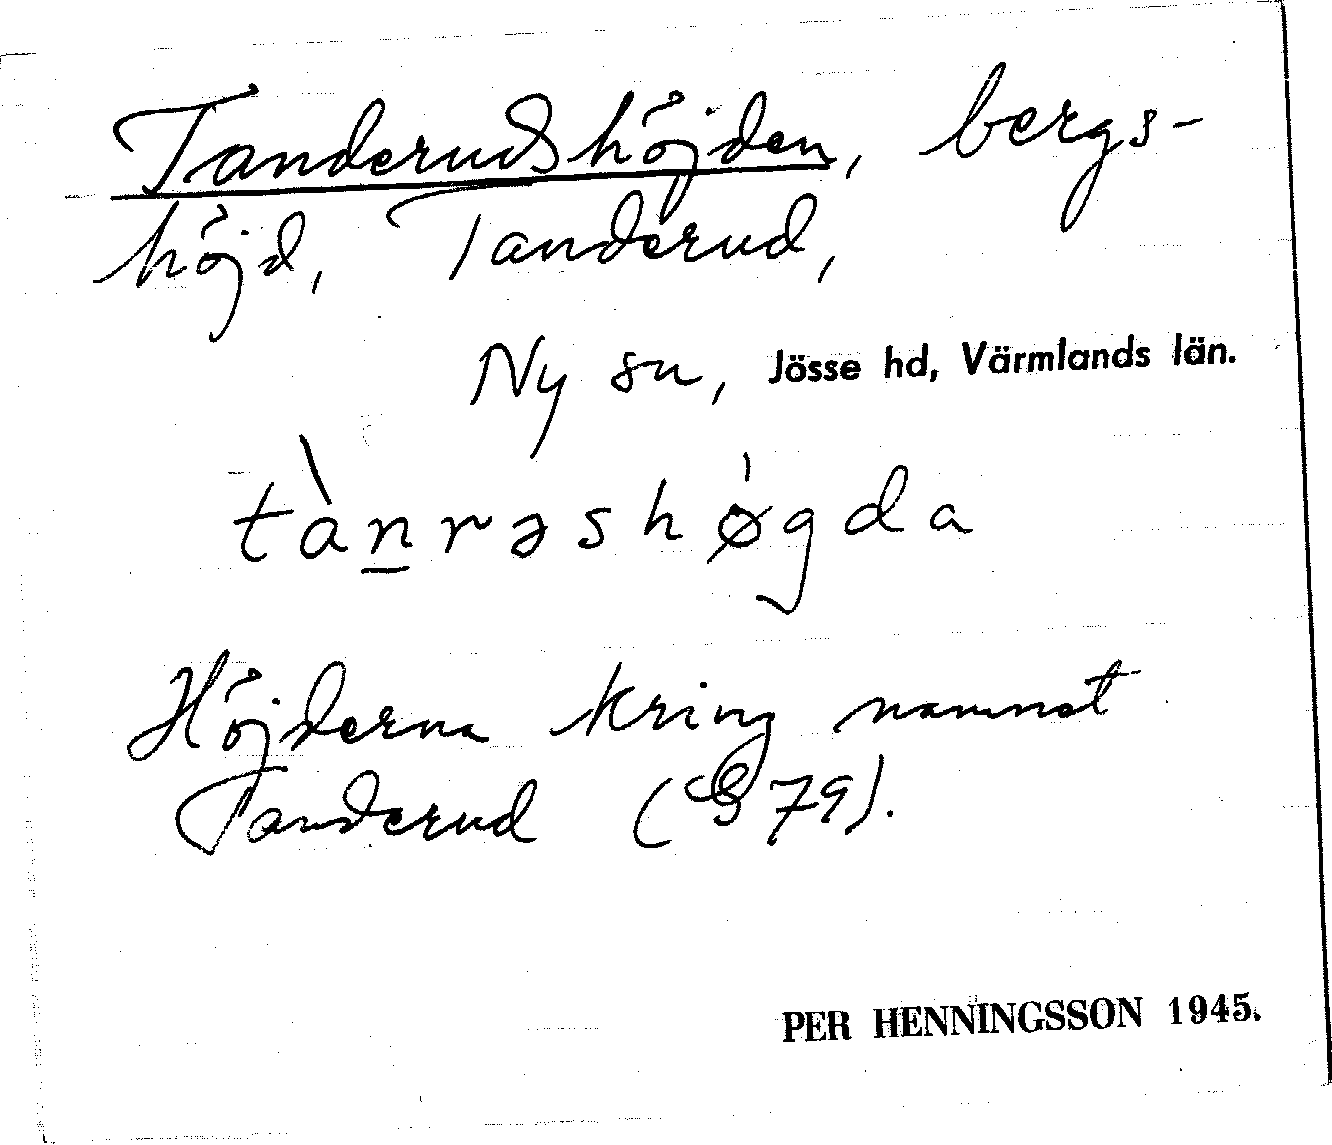 Tanderudshöjden, bergs-
höjd, Tanderud,
Ny sn, Jösse hd, Värmlands län.
tànrəshøgda
Höjderna kring namnet
Tanderud (G 79).
PER HENNINGSSON 1945.